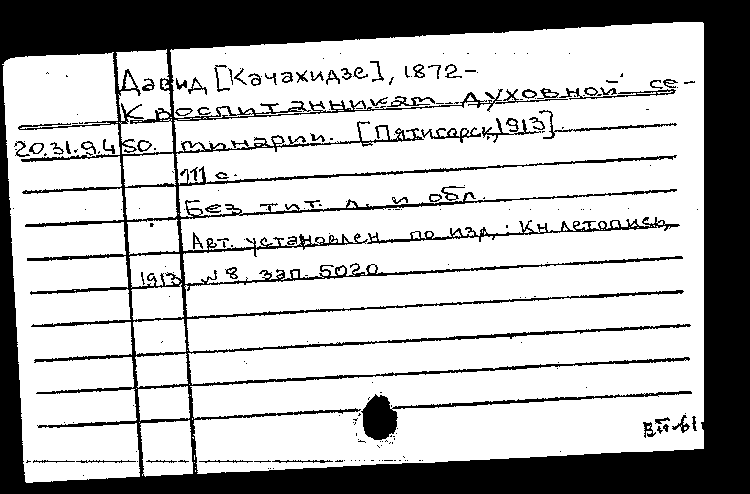 Давид [Качахидзе], 1872-
К воспитанникам духовной се-
20.31.9.4 SO. минарии. [Пятигорск, 1913].
111 с.
Без тит. л. и обл.
Авт. установлен по изд.: Кн. летопись,
1913, № 8, зап. 5020